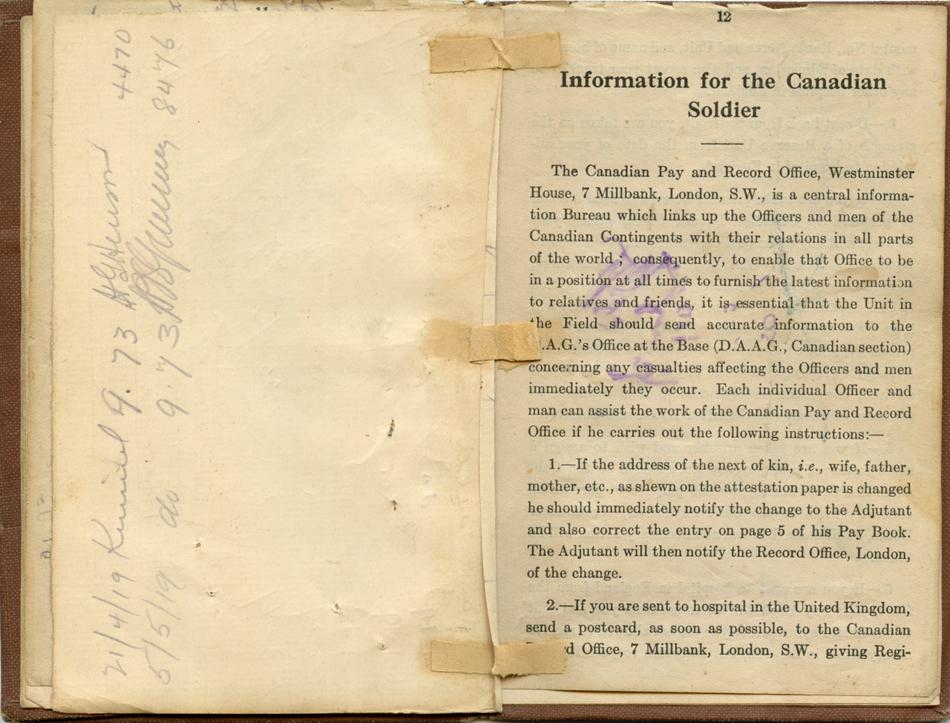 21/4/19 9.73 4470
5/5/19 do 9.73 8476
12
Information for the Canadian
Soldier
The Canadian Pay and Record Office, Westminster
House, 7 Millbank, London, S.W., is a central informa-
tion Bureau which links up the Officers and men of the
Canadian Contingents with their relations in all parts
of the world ; consequently, to enable that Office to be
in a position at all times to furnish the latest information
to relatives and friends, it is essential that the Unit in
the Field should send accurate information to the
.A.G.'s Office at the Base (D.A.A.G., Canadian section)
concerning any casualties affecting the Officers and men
immediately they occur. Each individual Officer and
man can assist the work of the Canadian Pay and Record
Office if he carries out the following instructions:—
1.—If the address of the next of kin, i.e., wife, father,
mother, etc., as shewn on the attestation paper is changed
he should immediately notify the change to the Adjutant
and also correct the entry on page 5 of his Pay Book.
The Adjutant will then notify the Record Office, London,
of the change.
2.—If you are sent to hospital in the United Kingdom,
send a postcard, as soon as possible, to the Canadian
d Office, 7 Millbank, London, S.W., giving Regi-